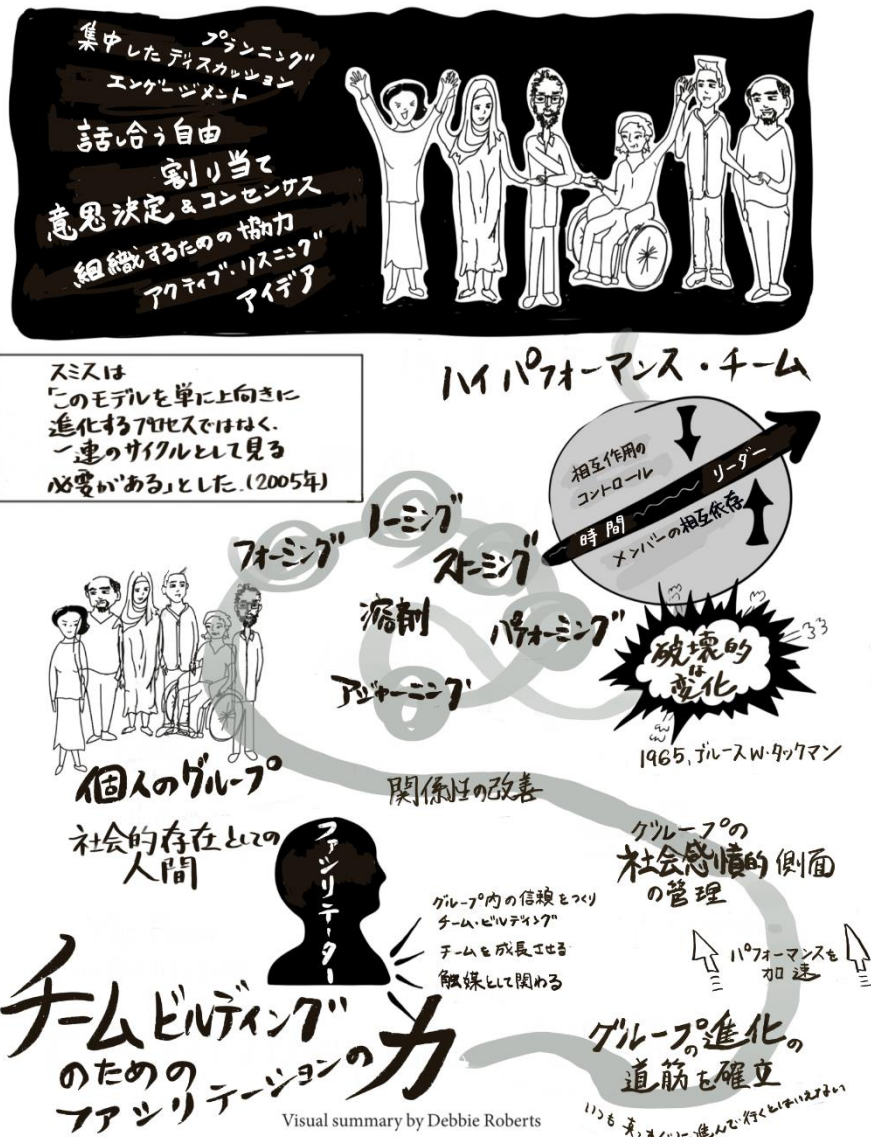 プランニング
集中したディスカッション
エンゲージメント
話し合う自由
割り当て
意思決定&コンセンサス
組織するための協力
アクティブ・リスニング
アイデア
スミスは
「このモデルを単に上向きに
進化するプロセスではなく、
一連のサイクルとして見る
必要がある」とした.(2005年)
ハイパフォーマンス・チーム
相互作用の
コントロール
リーダー
時間
メンバーの相互依存
フォーミング
ノーミング
ストーミング
溶剤
パフォーミング
アジャーニング
破壊的
は
変化
1965, ブルースW・タックマン
個人のグループ
関係性の改善
社会的存在としての
人間
ファシリテーター
グループ内の信頼をつくり
チーム・ビルディング
チームを成長させる
触媒として関わる
グループの
社会感情的側面
の管理
パフォーマンスを
加速
チームビルディング
のための
ファシリテーションの力
グループの進化の
道筋を確立
いつも真っすぐに進んで行くとはいえない
Visual summary by Debbie Roberts